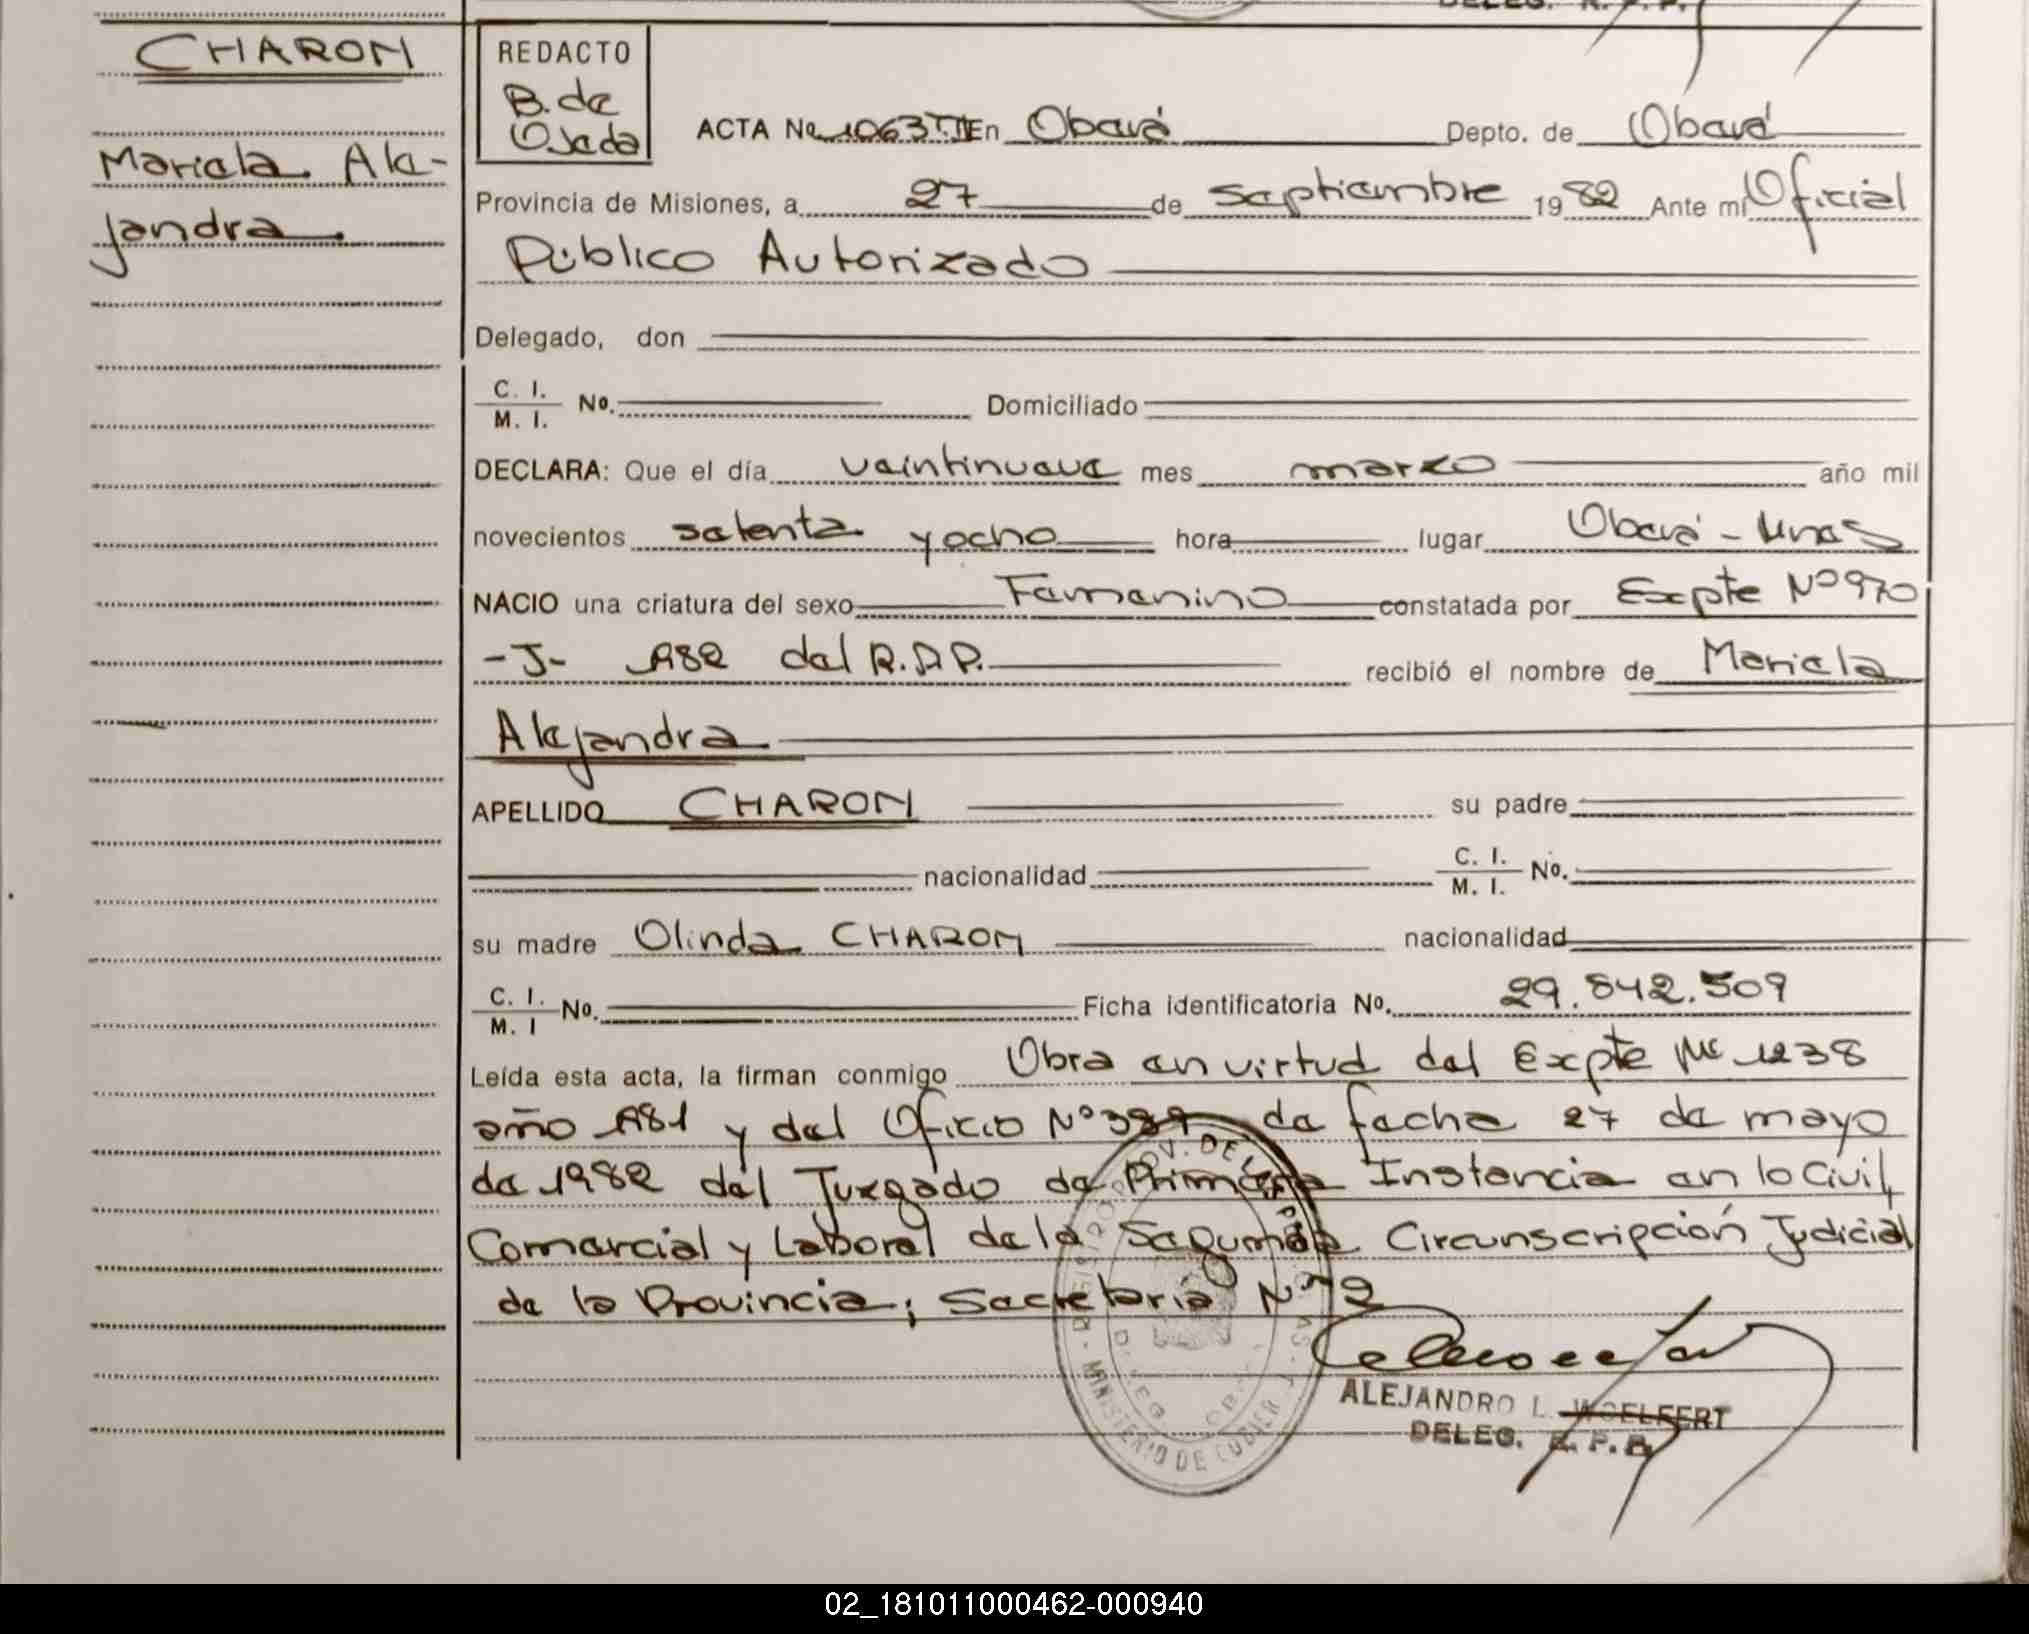 DELEG. R. P. P.
CHARON
Mariela Ale-
jandra.
REDACTO
B. de
Ojeda
ACTA No 1063 T. II En Oberá Depto. de Oberá
Provincia de Misiones, a 27 de septiembre 1982 Ante mí Oficial
Público Autorizado
Delegado, don
C. I.
M. I. No. Domiciliado
DECLARA: Que el día veintinueve mes marzo año mil
novecientos setenta y ocho hora lugar Oberá - Mnes
NACIO una criatura del sexo Femenino constatada por Expte Nº 970
-J- 1982 del R.D.P. recibió el nombre de Mariela
Alejandra
APELLIDO CHARON su padre
nacionalidad C. I.
M. I. No.
su madre Olinda CHARON nacionalidad
C. I.
M. I No. Ficha identificatoria No. 29.842.509
Leída esta acta, la firman conmigo Obra en virtud del Expte Nº 1238
año 1981 y del Oficio Nº de fecha 27 de mayo
de 1982 del Juzgado de Primera Instancia en lo Civil,
Comercial y Laboral de la Segunda Circunscripción Judicial
de la Provincia; Secretaria Nº 2
MINISTERIO DE GOBIER
ALEJANDRO L. WOELFERT
DELEG. R. P. P.
02_181011000462-000940